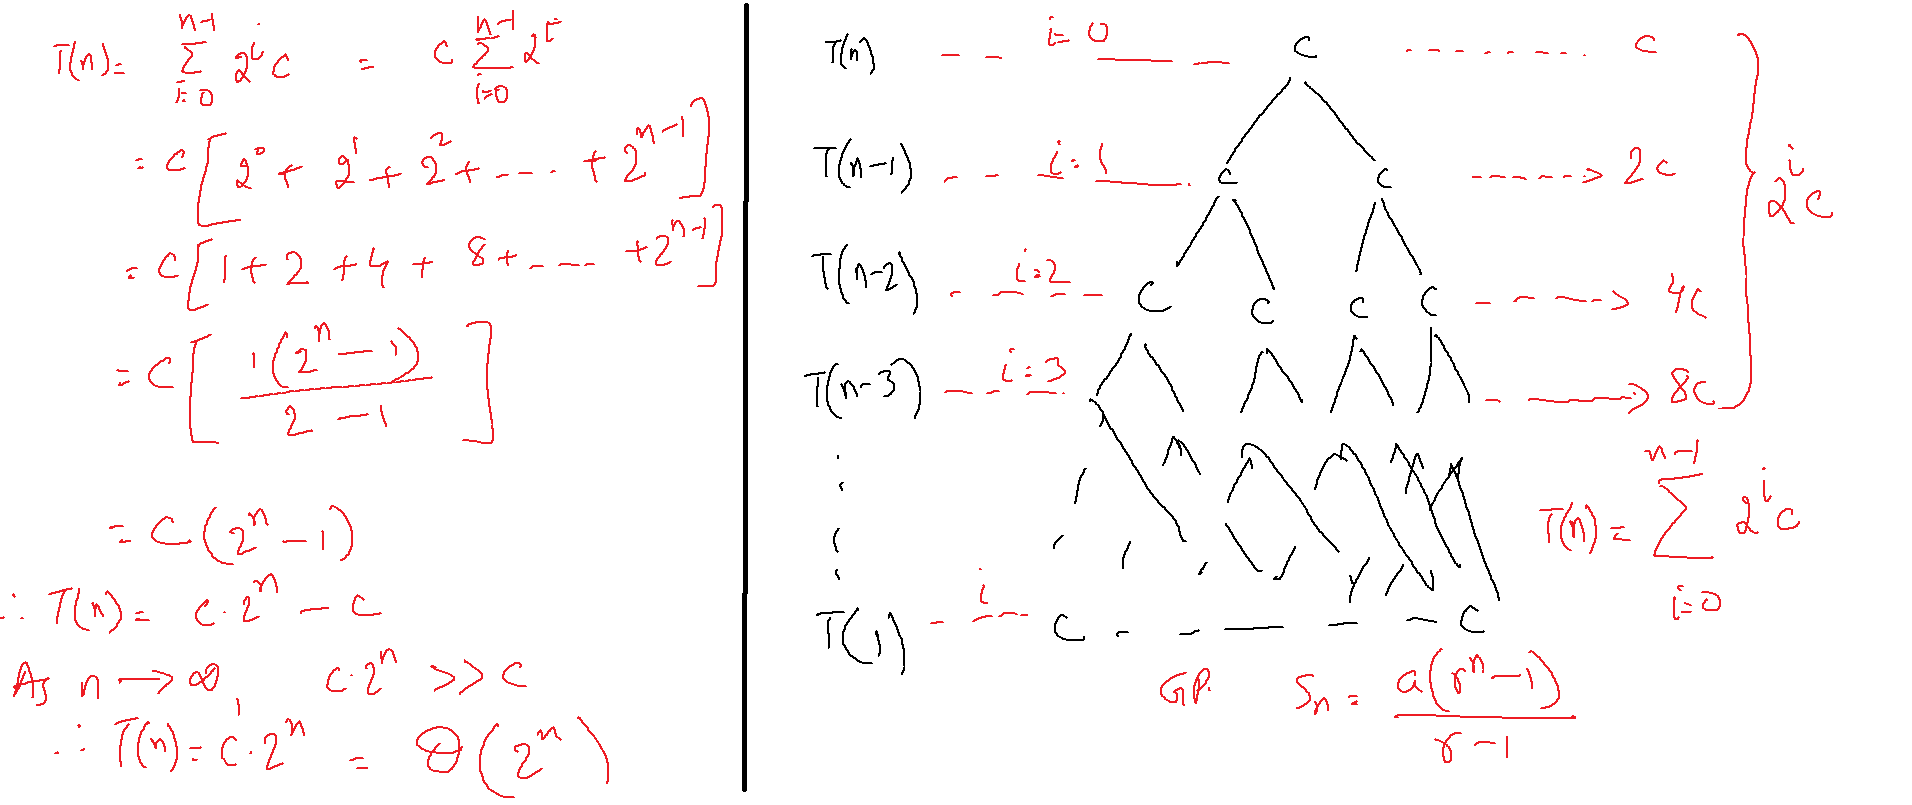 T(n) = n-1 Σ i=0 2^i c = c n-1 Σ i=0 2^i
= c [ 2^0 + 2^1 + 2^2 + ---. + 2^{n-1} ]
= c [ 1 + 2 + 4 + 8 + . --- + 2^{n-1} ]
= c [ 1(2^n - 1) / 2 - 1 ]
= c (2^n - 1)
∴ T(n) = c·2^n - c
As n → ∞, c·2^n >> c
∴ T(n) = c·2^n = Θ(2^n)
T(n) -- i=0 --- c -------- c
T(n-1) -- i=1 --- c c -----> 2c
T(n-2) - i=2 -- c c c c ----> 4c
T(n-3) -- i=3 - - ---> 8c
2^i c
T(n) = n-1 Σ i=0 2^i c
T(1) - i -- c - - --- - - c
GP. Sn = a(r^n - 1) / r - 1